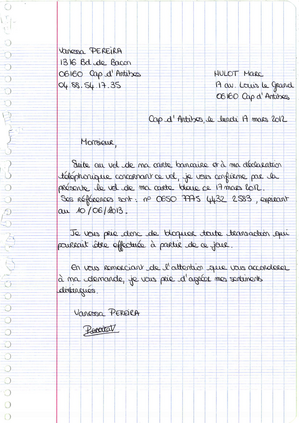 Vanessa PEREIRA
1316 Bd. de Bacon
06160 Cap d'Antibes
04.88.54.17.35
HULOT Marc
17 av. Louis le Grand
06160 Cap d'Antibes
Cap d'Antibes, le lundi 17 mars 2012
Monsieur,
Suite au vol de ma carte bancaire et à ma déclaration
téléphonique concernant ce vol, je vous confirme par la
présente le vol de ma carte bleue ce 17 mars 2012.
Ses références sont : n° 0650 7775 4432 2583, expirant
au 10/06/2013.
Je vous prie donc de bloquer toute transaction qui
pourrait être effectuée à partir de ce jour.
En vous remerciant de l'attention que vous accorderez
à ma demande, je vous prie d'agréer mes sentiments
distingués.
Vanessa PEREIRA